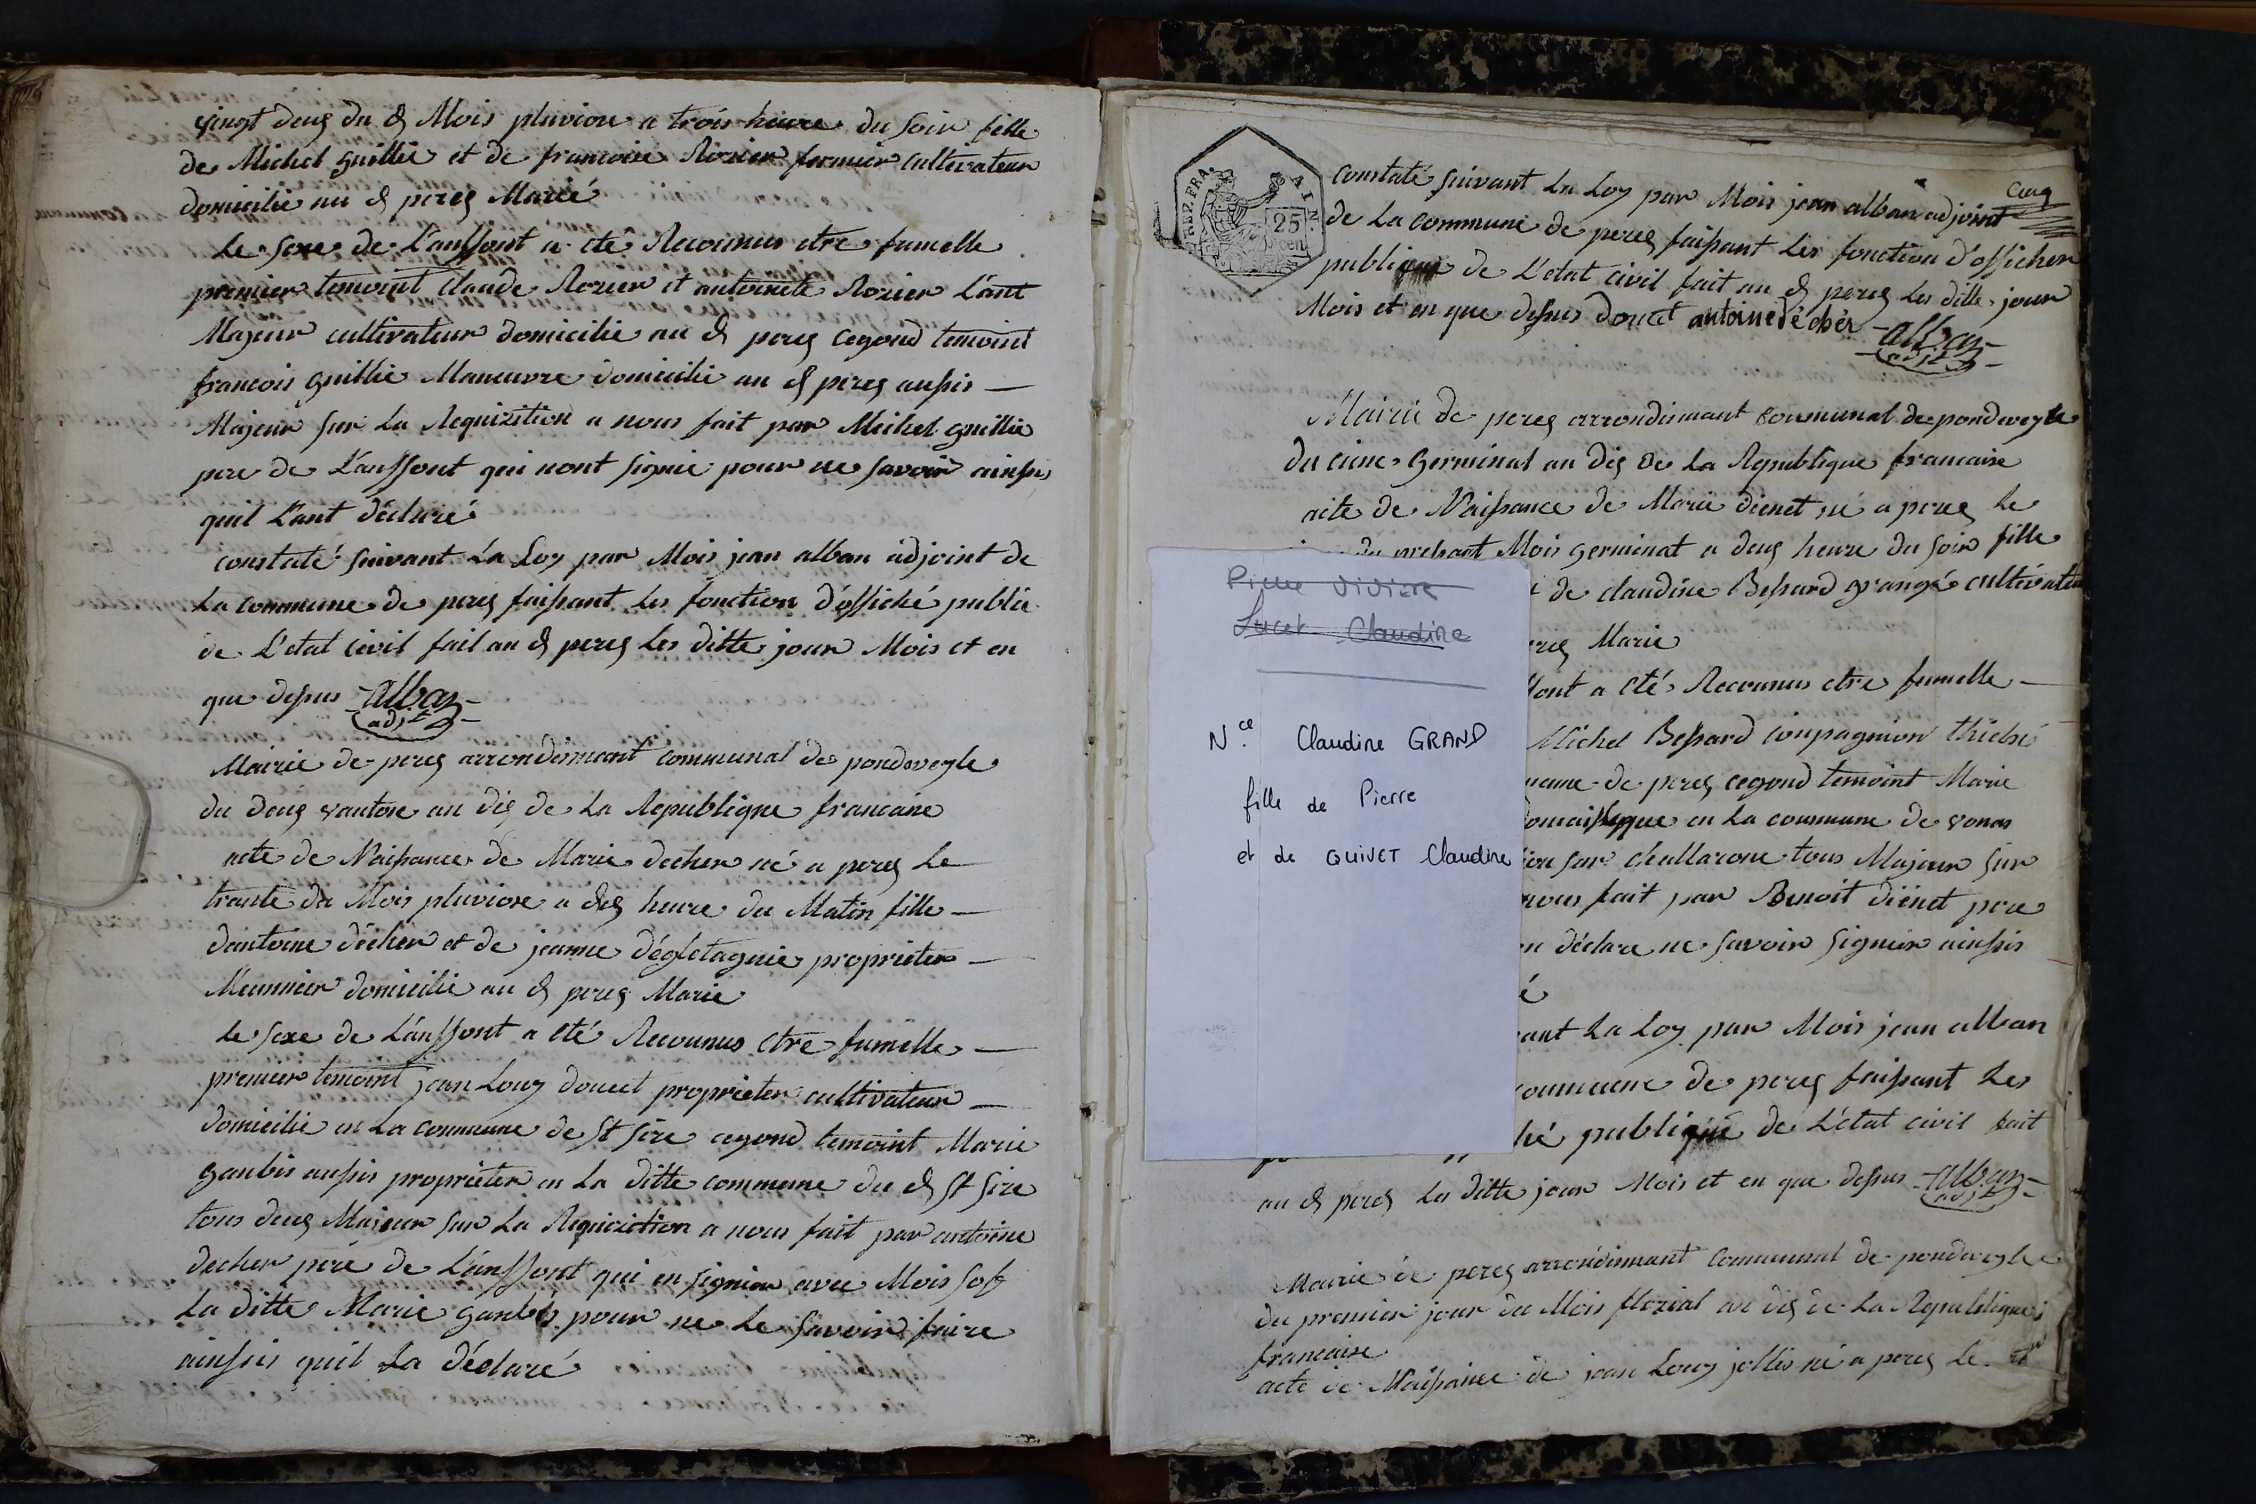 vingt deux du d Mois pluviore a trois heure du soir fille
de Michel guillie et de francoise Rozier fermier cultivateur
domicilie au d perex Marié
Le sexe de L'anffont a eté Reconnus etre fumelle
premier temoint Claude Rozier et antoinete Rozier L'ant
Majeur cultivateur domicilie au d perex cegond temoint
francois guillie Maneuvre domicilie au d perex aussis
Majeur sur La Requizition a nous fait par Michel guillie
pere de L'anffont qui nont signie pour ne savoir ainssis
quil L'ant déclaré
constaté suivant La Loy par Mois jean alban adjoint de
La commune de perex faissant Les fonction d'offiché public
de L'etat civil fait au d perex Les ditte jour Mois et en
que dessus alban
adjt
Mairie de perex arrondissment communal de pondeveyle
du deux vantose an dix de La Republique francaise
acte de Naissance de Marie decher né a perex Le
trante du Mois pluviose a dix heure du Matin fille
dantoine décher et de jeanne dégletagnie proprieter
Meunnier domicilie au d perex Marie
Le sexe de L'anffont a eté Reconnus etre fumelle
premier temoint jean Louy doucet proprieter cultivateur
domicilie en La commune de St sire cegond temoint Marie
gaubis aussis proprieter en La ditte commune du d St sire
tous deux Majeur sur La Requiziction a nous fait par antoine
decher pere de L'anffont qui en signier avec Mois sof
La ditte Marie gaubis pour ne Le savoir faire
ainssis quil La déclaré
REP. FRA. AIN.
25 cen
cinq
constaté suivant La Loy par Mois jean alban adjoint
de La commune de perex faissant Les fonction d'officher
publique de L'etat civil fait au d perex Les ditte jour
Mois et en que dessus doucet antoine décher alban
adjt
Mairie de perex arrondissmant communal de pondeveyle
du cinc Germinal an dix de La Republique francaise
acte de Naissance de Marie dienet né a perex Le
du pressant Mois germinal a deux heure du soir fille
de claudine Bessard grangé cultivateu
Marie
a eté Reconnus etre fumelle
Michel Bessard compagnion
de perex cegond temoint Marie
en La commune de vonas
sur challarone tous Majeur sur
nous fait par Benoit dienet pere
déclare ne savoir signier ainssis
La Loy par Mois jean alban
commune de perex faissant Les
publique de L'état civil fait
au d perex Les ditte jour Mois et en que dessus alban
adjt
Mairie de perex arrondissmant communal de pondeveyle
du premier jour du Mois florial an dix de La Republique
francaise
acte de Naissance de jean Louy jollis né a perex Le
Pierre Vivière
Lucet Claudine
Nce Claudine GRAND
fille de Pierre
et de GUIVET Claudine